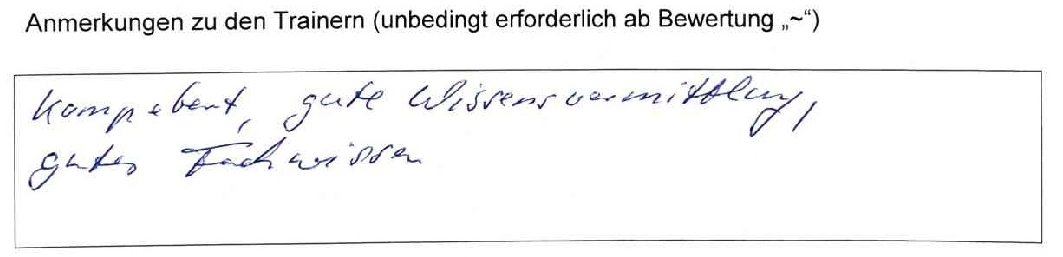 Anmerkungen zu den Trainern (unbedingt erforderlich ab Bewertung „~“)
kompetent, gute Wissensvermittlung,
gutes Fachwissen